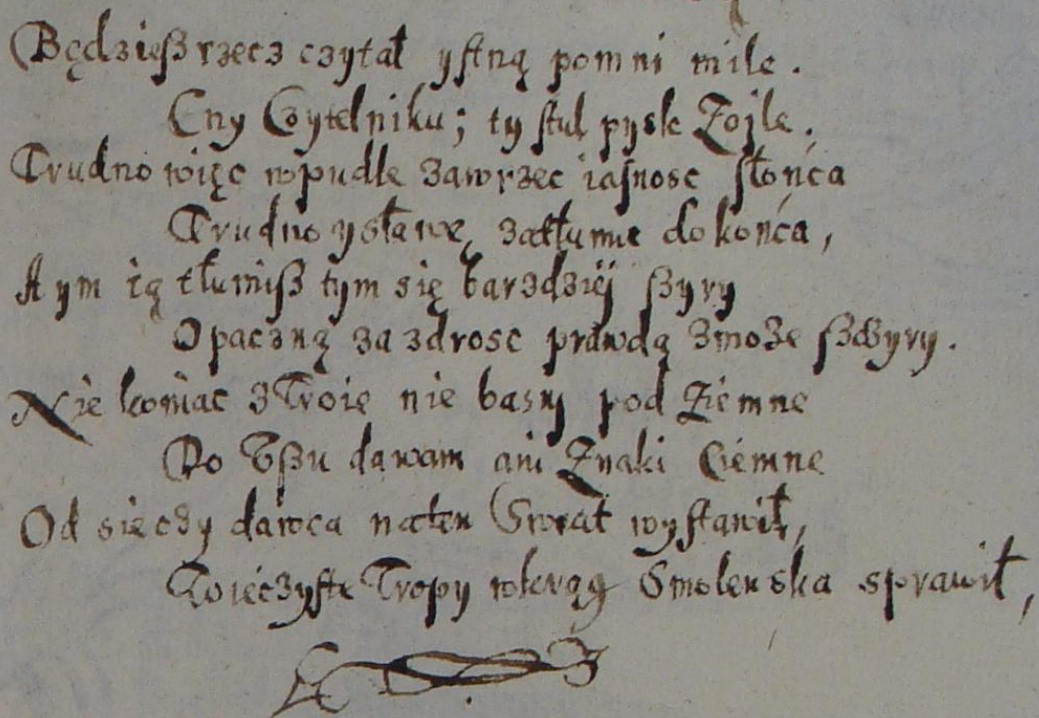 Będzieß rzecz czytał ystną pomni mile.
Cny Czytelniku; ty stul pysk Zojle.
Trudno więc wpudle zawrzec iasnosc słońca
Trudno y sławę zatłumic do końca,
A ym ią tłumiß tym się barzdziéj ßzyry
Opaczną zazdrosc prawdą zmoże ßczyry.
Nie koniac z Troie nie basnj pod Ziemne
Do Vßu dawam ani Znaki Ciemne
Od dawca naten Swiat wystawił,
Wieczyste Tropy wkrąg Smolenska sprawił,